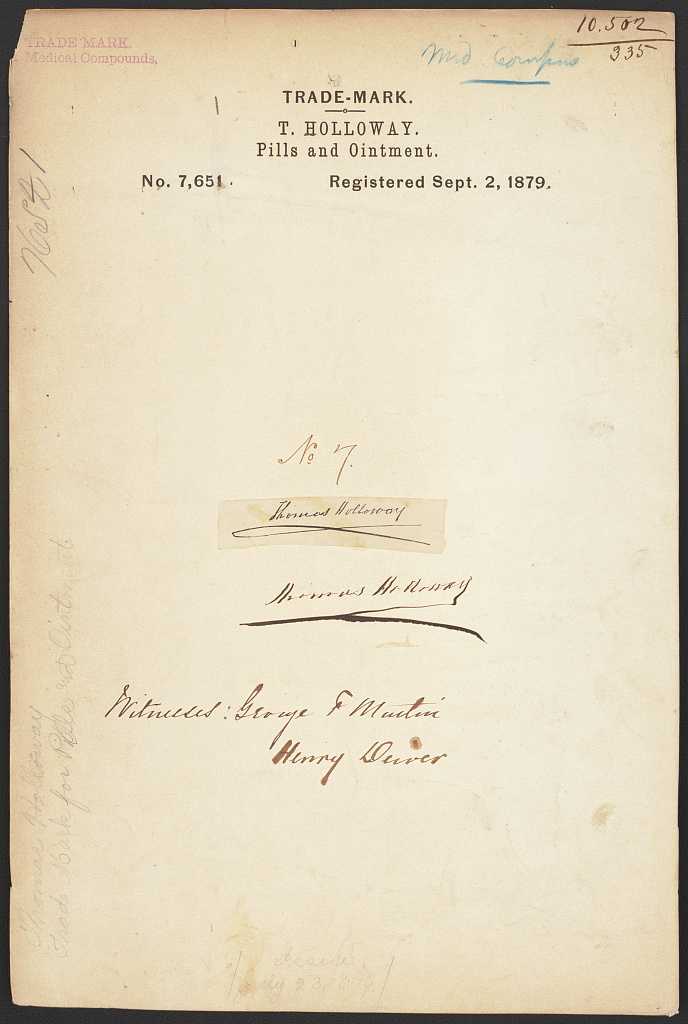 TRADE MARK.
Medical Compounds,
10.502
335
Med Compns
TRADE-MARK.
T. HOLLOWAY.
Pills and Ointment.
No. 7,651.
Registered Sept. 2, 1879.
7651
No 7.
Thomas Holloway
Thomas Holloway
Witnesses: George F Martin
Henry
Thomas Holloway
Trade Mark for Pills and Ointment
July 23, 1879